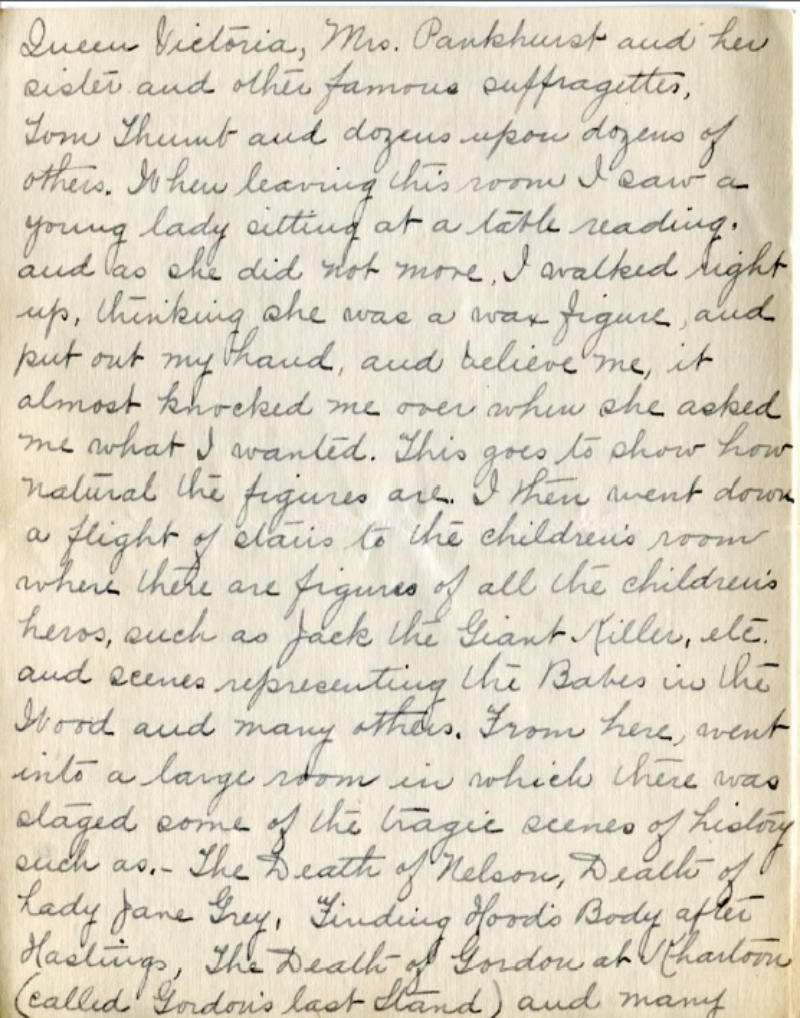 Queen Victoria, Mrs. Pankhurst and her
sister and other famous suffragettes,
Tom Thumb and dozens upon dozens of
others. When leaving this room I saw a
young lady sitting at a table reading.
and as she did not move, I walked right
up, thinking she was a wax figure, and
put out my hand, and believe me, it
almost knocked me over when she asked
me what I wanted. This goes to show how
natural the figures are. I then went down
a flight of stairs to the children's room
where there are figures of all the children's
heros, such as Jack the Giant Killer, etc.
and scenes representing the Babes in the
Wood and many others. From here, went
into a large room in which there was
staged some of the tragic scenes of history
such as.- The Death of Nelson, Death of
Lady Jane Grey, Finding Hood's Body after
Hastings, The Death of Gordon at Khartoon
(called Gordon's last Stand) and many